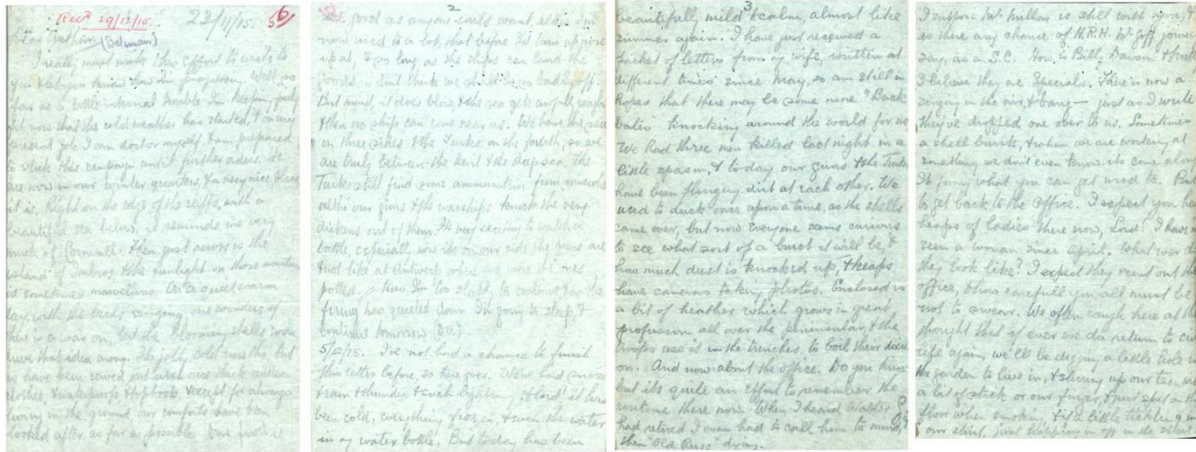 Recd 29/12/15.
22/11/15.
(Bateman)
I really must make this effort to write to
you & let you know how I'm progressing. Well, so
far as a little internal trouble I'm keeping fairly
fit now that the cold weather has started, & on my
present job I am doctor myself & am prepared
to stick this campaign until further orders. We
are now in our winter quarters & a very nice place
it is. Right on the edge of the cliffs, with a
beautiful sea below, it reminds me very
much of Cornwall. Then just across is the
island of Imbros & the sunlight on those mountains
is sometimes marvellous. On a quiet warm
day with the larks singing one wonders if
there is a war on, but the blooming shells soon
drive that idea away. Its jolly cold now tho, but
we have been served out with nice thick winter
clothes & waterproofs & top boots & except for always
living in the ground, our comforts have been
looked after as far as possible. Our food is
2
as good as anyone could want, also I'm
now used to a lot, that before I'd turn up my nose
up at, & so long as the ships can land the
goods I don't think we shall be so badly off.
But mind, it does blow & the sea gets awfully rough
& then no ships can come near us. We have the sea
on three sides & the Turks on the fourth, so we
are truly between the devil & the deep sea. The
Turks still find some ammunition from somewhere
altho our guns & the warships knock the very
dickens out of them. It's very exciting to watch a
battle especially now its on our side the guns are
& not like at Antwerp when we were the ones
potted. I'm too sleepy to continue & as the
firing has quieted down I'm going to sleep, &
continue tomorrow (D.V.)
5/12/15. I've not had a chance to finish
this letter before, so here goes. We've had snow
rain & thunder & such lightning, & lord it has
been cold, everything frozen, & even the water
in my water bottle. But today has been
3
beautifully mild & calm, almost like
summer again. I have just received a
packet of letters from my wife, written at
different times since May, so am still in
hopes that there may be some more "Back
dates" knocking around the world for me
We had three men killed last night in a
little spasm, & today our guns & the Turks
have been flinging dirt at each other. We
used to duck once upon a time, as the shells
came over, but now everyone seems curious
to see what sort of a burst it will be, &
how much dust is knocked up, & heaps
have cameras taking photos. Enclosed is
a bit of heather which grows in great
profusion all over the peninsular, & the
troops use it in the trenches to boil their
on. And now about the office. Do you know
but its quite an effort to remember the
routine there now. When I heard Walter
had retired I even had to call him to mind, &
then "Old Russ" dying.
I suppose Mr Mullan is still with you, &
is there any chance of H.R.H. Mr Goff
say, as a S.C. How is Billy Dawson
I believe they are Specials. There's now a
singing in the air, & bang — just as I write
they've dropped one over to us. Sometimes
a shell bursts, & when we are working at
something we don't even know its come along
Its funny what you can get used to. But
to get back to the office. I expect you have
heaps of ladies there now, Lord! I have not
seen a woman since April. What ever
they look like? I expect they record out the
office, & how carefull you all must be
not to swear. We often laugh here at the
thought that if ever we do return to
life again, we'll be digging a little hole in
the garden to live in, & stirring up our tea with
a bit of stick or our finger, & just spit on the
floor when smoking & if a little tickling in
our shirt, just